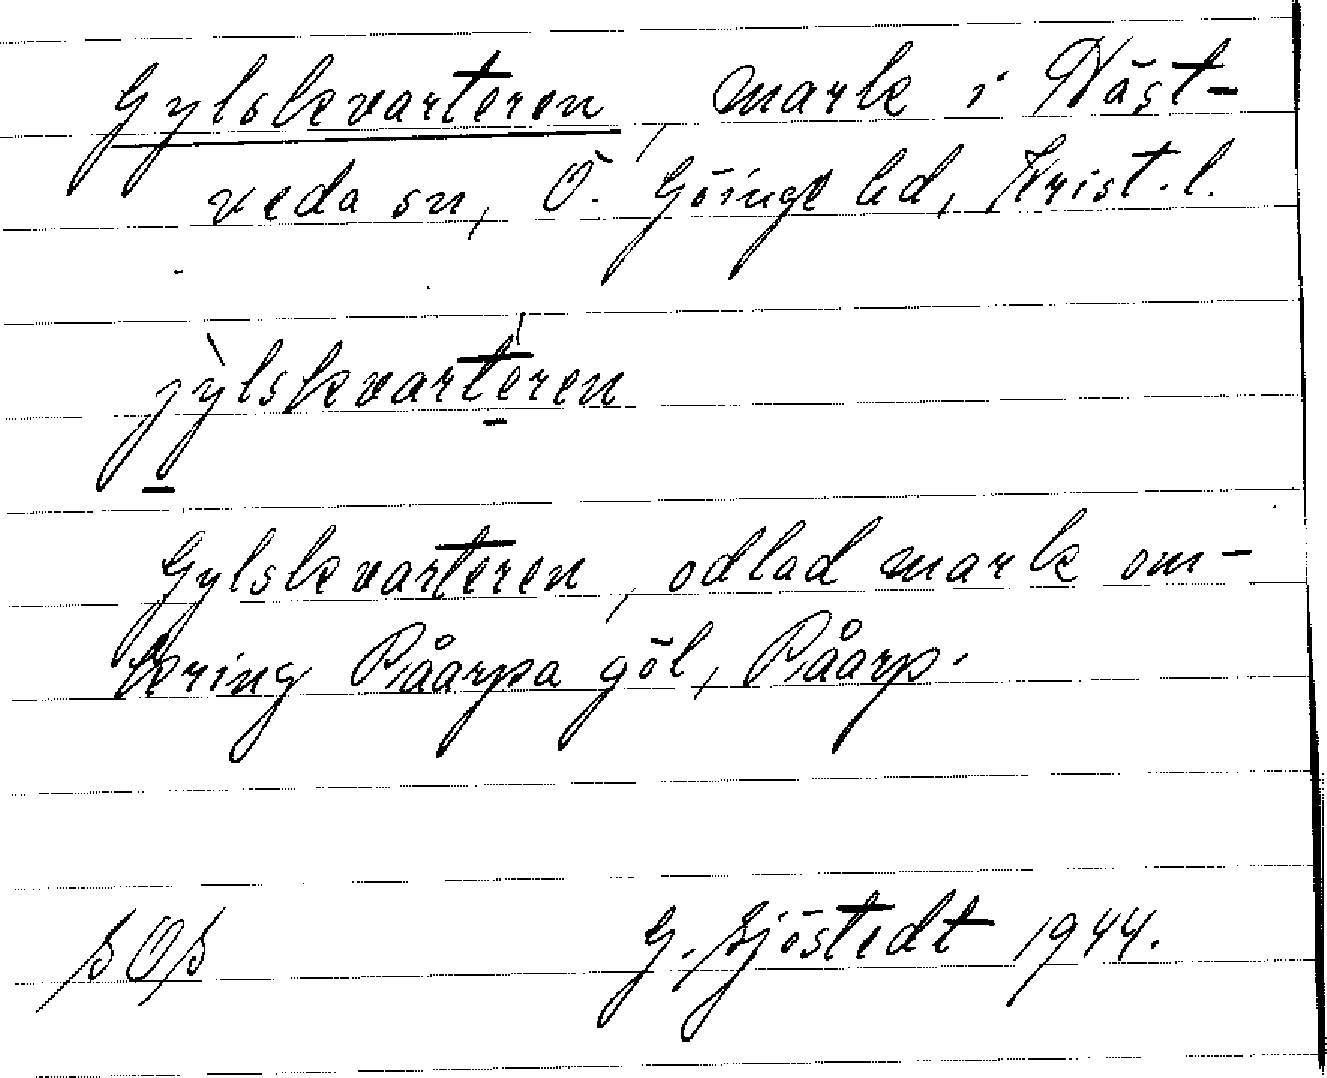 Gylskvarteren, mark i Näst-
veda sn, Ö. Göinge hd, Krist. l.
jỳlskvartéren
Gylskvarteren, odlad mark om-
kring Påarpa göl, Påarp.
G. Sjöstedt 1944.